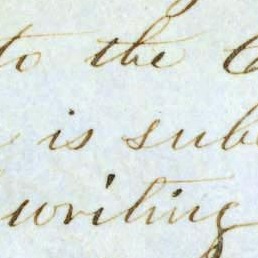 to the
is sub
writing